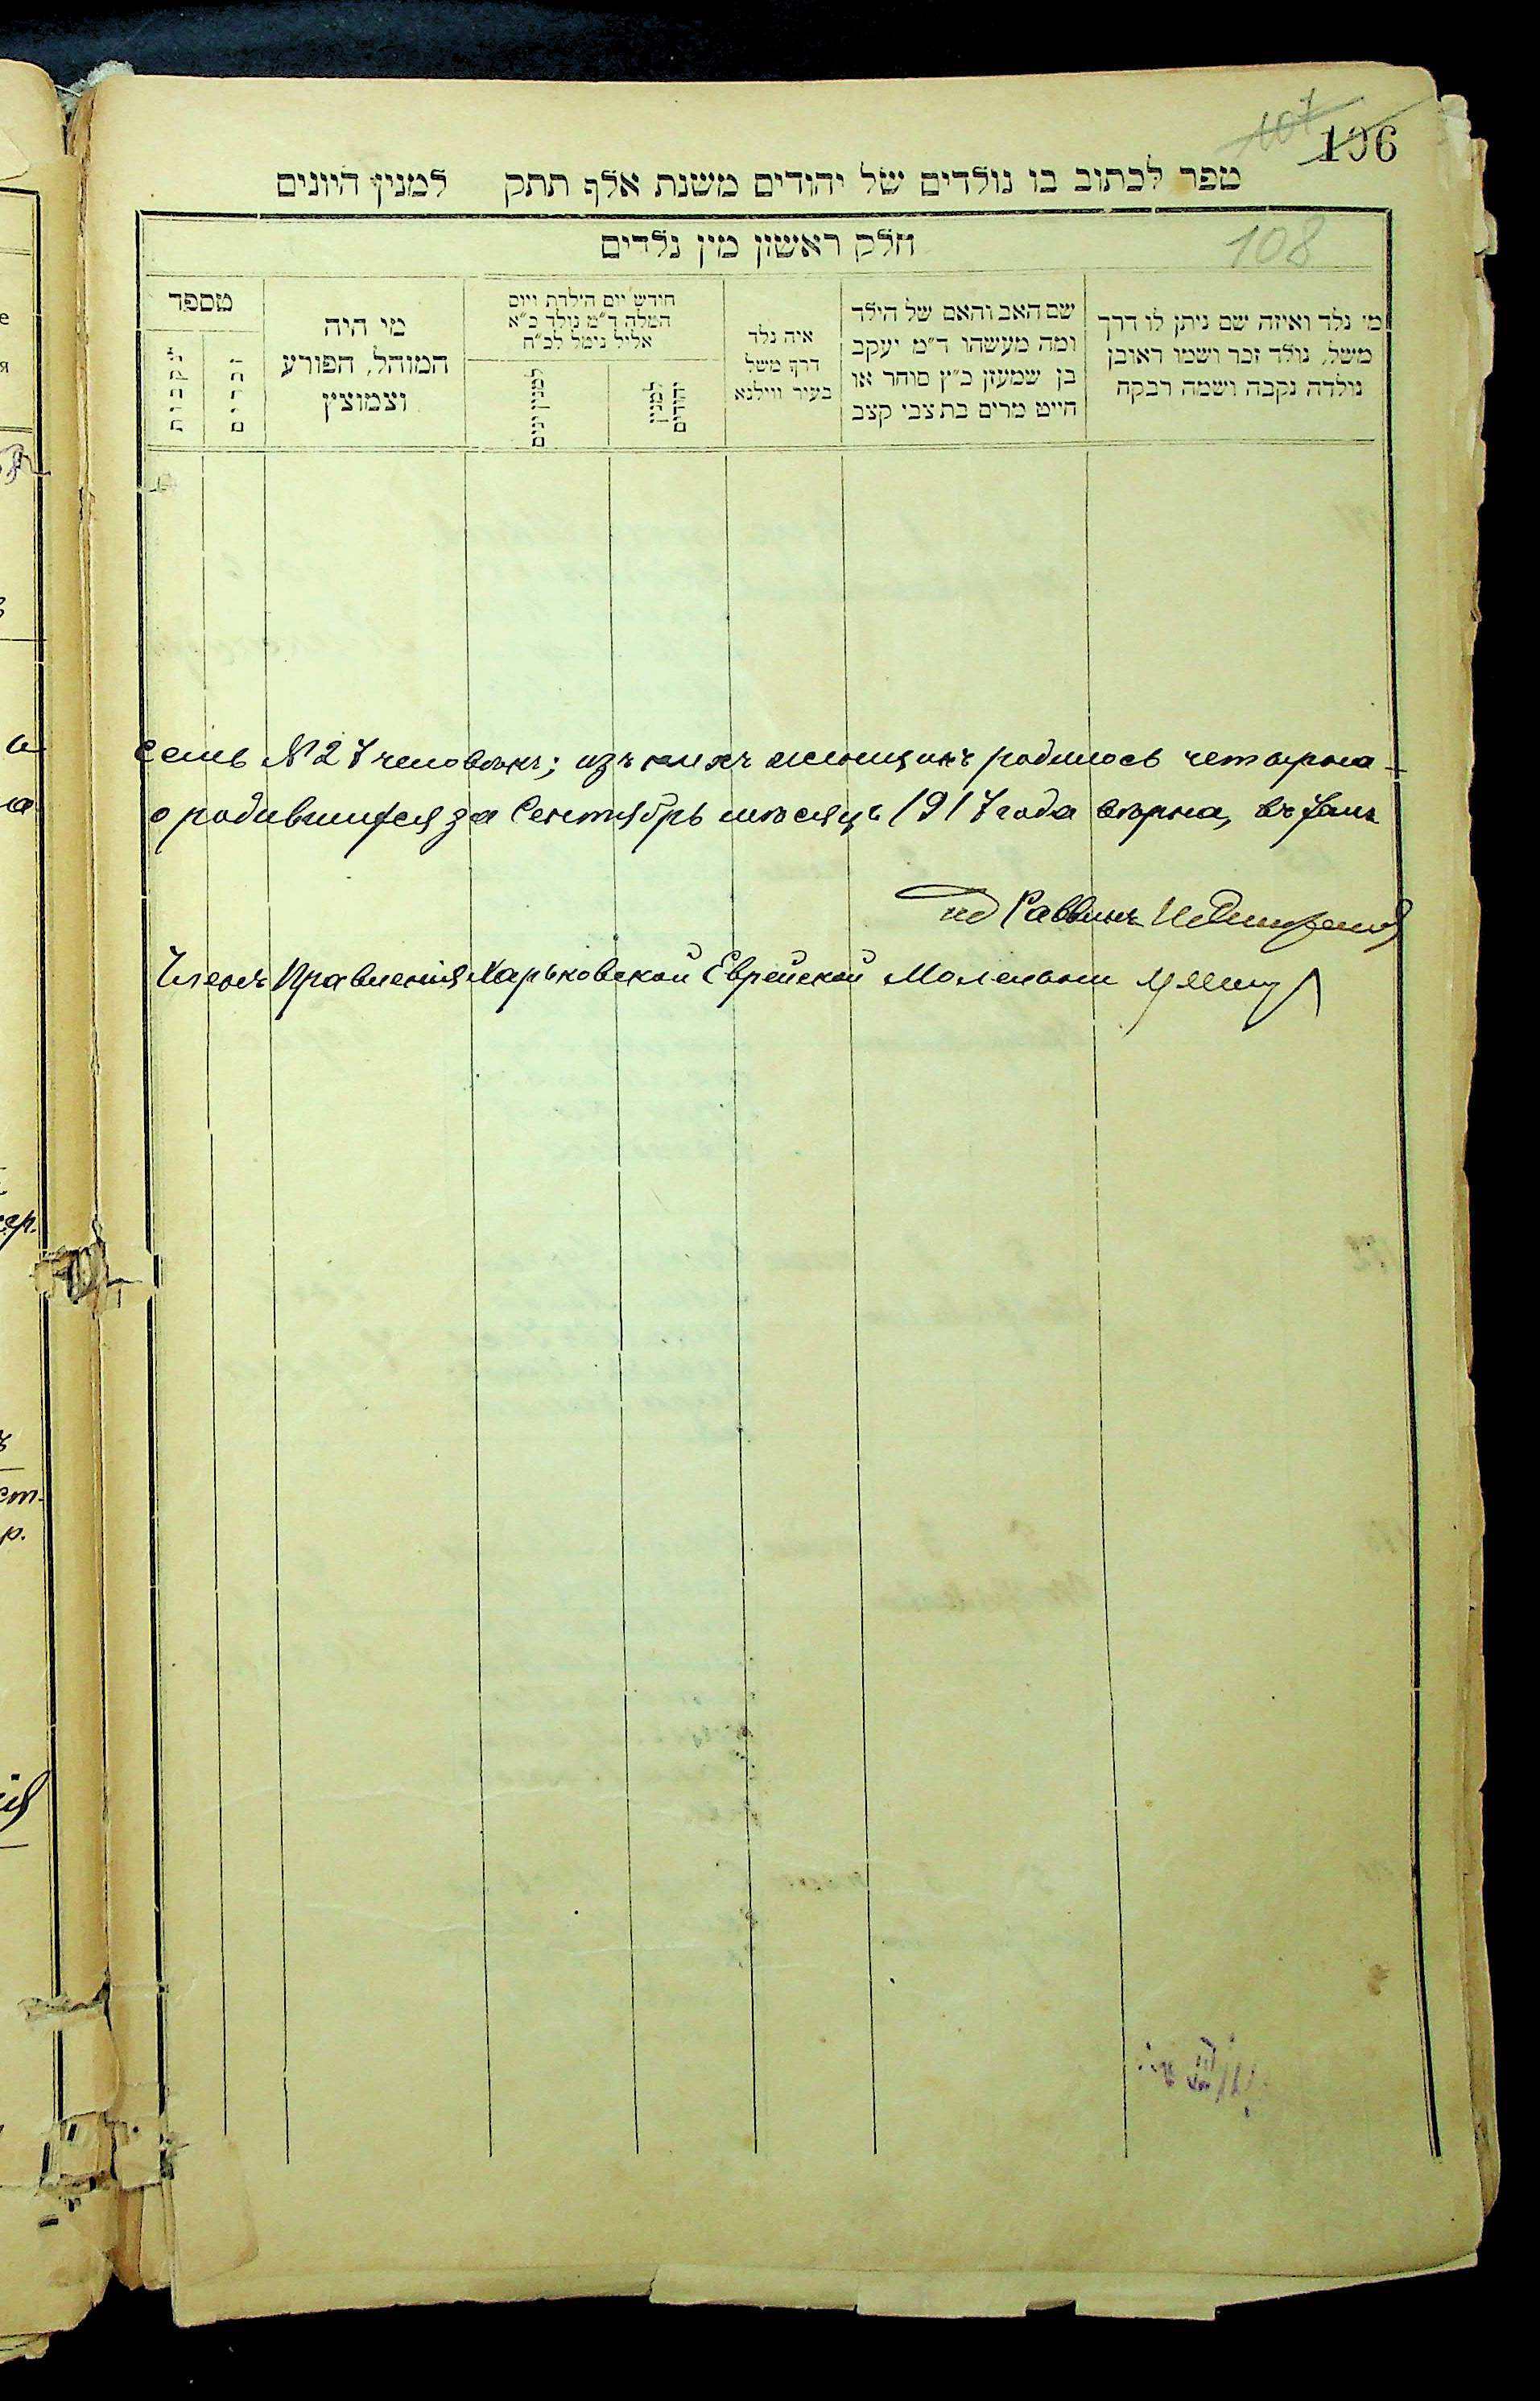 107
106
ספר לכתוב בו נולדים של יהודים משנת אלף תתק למנין היונים
108
חלק ראשון מין נלדים
מי נלד ואיזה שם ניתן לו דרך
משל, נולד זכר ושמו ראובן
נולדה נקבה ושמה רבקה
שם האב והאם של הילד
ומה מעשהו ד״מ יעקב
בן שמעון כ״ץ סוחר או
חייט מרים בת צבי קצב
איה נלד
דרך משל
בעיר ווילנא
חודש יום הילדת ויום
המלה ד״מ נולד כ״א
אליל נימל לכ״ח
למנין יהודים
למנין יונים
מי היה
המוהל, הפורע
וצמוצץ
מספר
זכרים
נקבות
семь № 27 человѣкъ; изъ нихъ женщинъ родилось четырна-
о родившихся за Сентябрь мѣсяцъ 1917 года вѣрна, въ
ид Раввинъ
Членъ Правленія Харьковской Еврейской Молельни